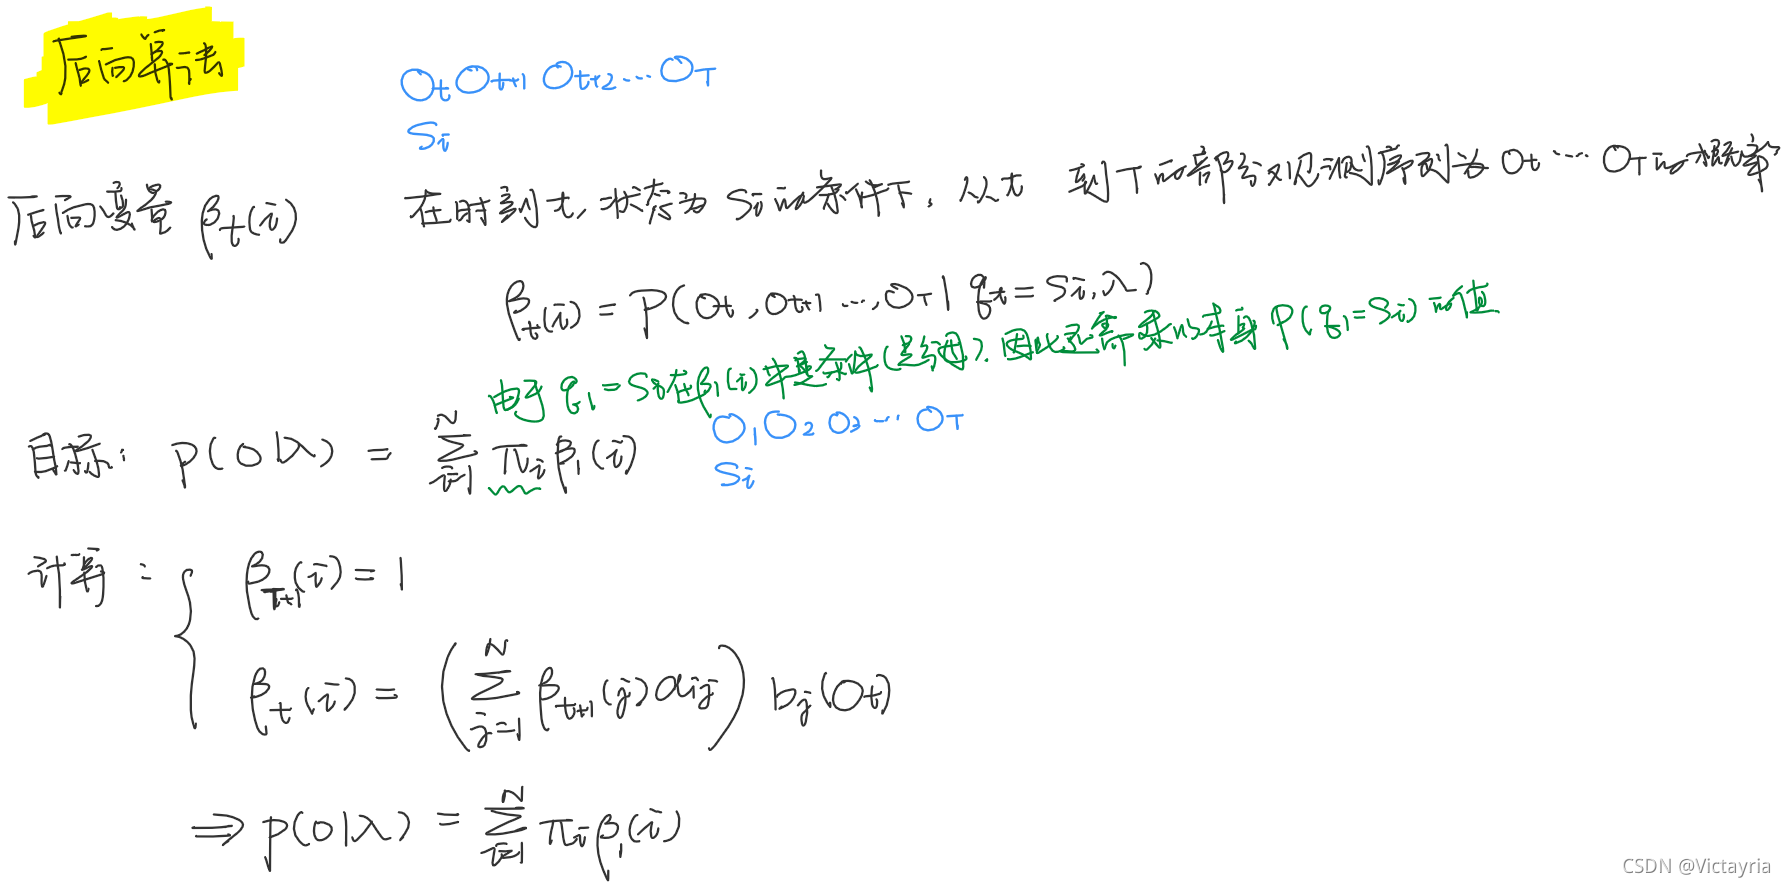 后向算法
OtOt+1 Ot+2...OT
Si
后向变量 βt(i) 在时刻t,状态为Si的条件下,从t 到T的部分观测序列为Ot...OT的概率
βt(i) = P(Ot,Ot+1...,OT| qt=Si,λ)
由于q1=Si在β1(i)中是条件(是分母).因此还需乘以本身P(q1=Si)的值
目标: P(O|λ) = ∑_{i=1}^{N} πi β1(i)
O1O2 O3...OT
Si
计算: βT+1(i) = 1
βt(i) = (∑_{j=1}^{N} βt+1(j)aij) bj(Ot)
⇒ P(O|λ) = ∑_{i=1}^{N} πi β1(i)
CSDN @Victayria